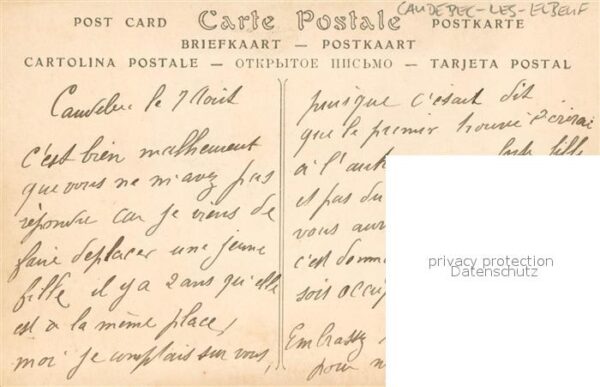 CAUDEBEC-LES-ELBEUF
POST CARD Carte Postale POSTKARTE
BRIEFKAART — POSTKAART
CARTOLINA POSTALE — ОТКРЫТОЕ ПИСЬМО — TARJETA POSTAL
Caudebec le 7 Août
c'est bien malheureux
que vous ne m'avez pas
répondu car je viens de
faire deplacer une jeune
fille il y a 2 ans qu'elle
est à la même place,
moi je comptais sur vous,
puisque c'était dit
que le premier trouvé écrirai
à l'aut
et pas du
vous aur
c'est domm
soit occup
Embrassez
pour n
privacy protection
Datenschutz